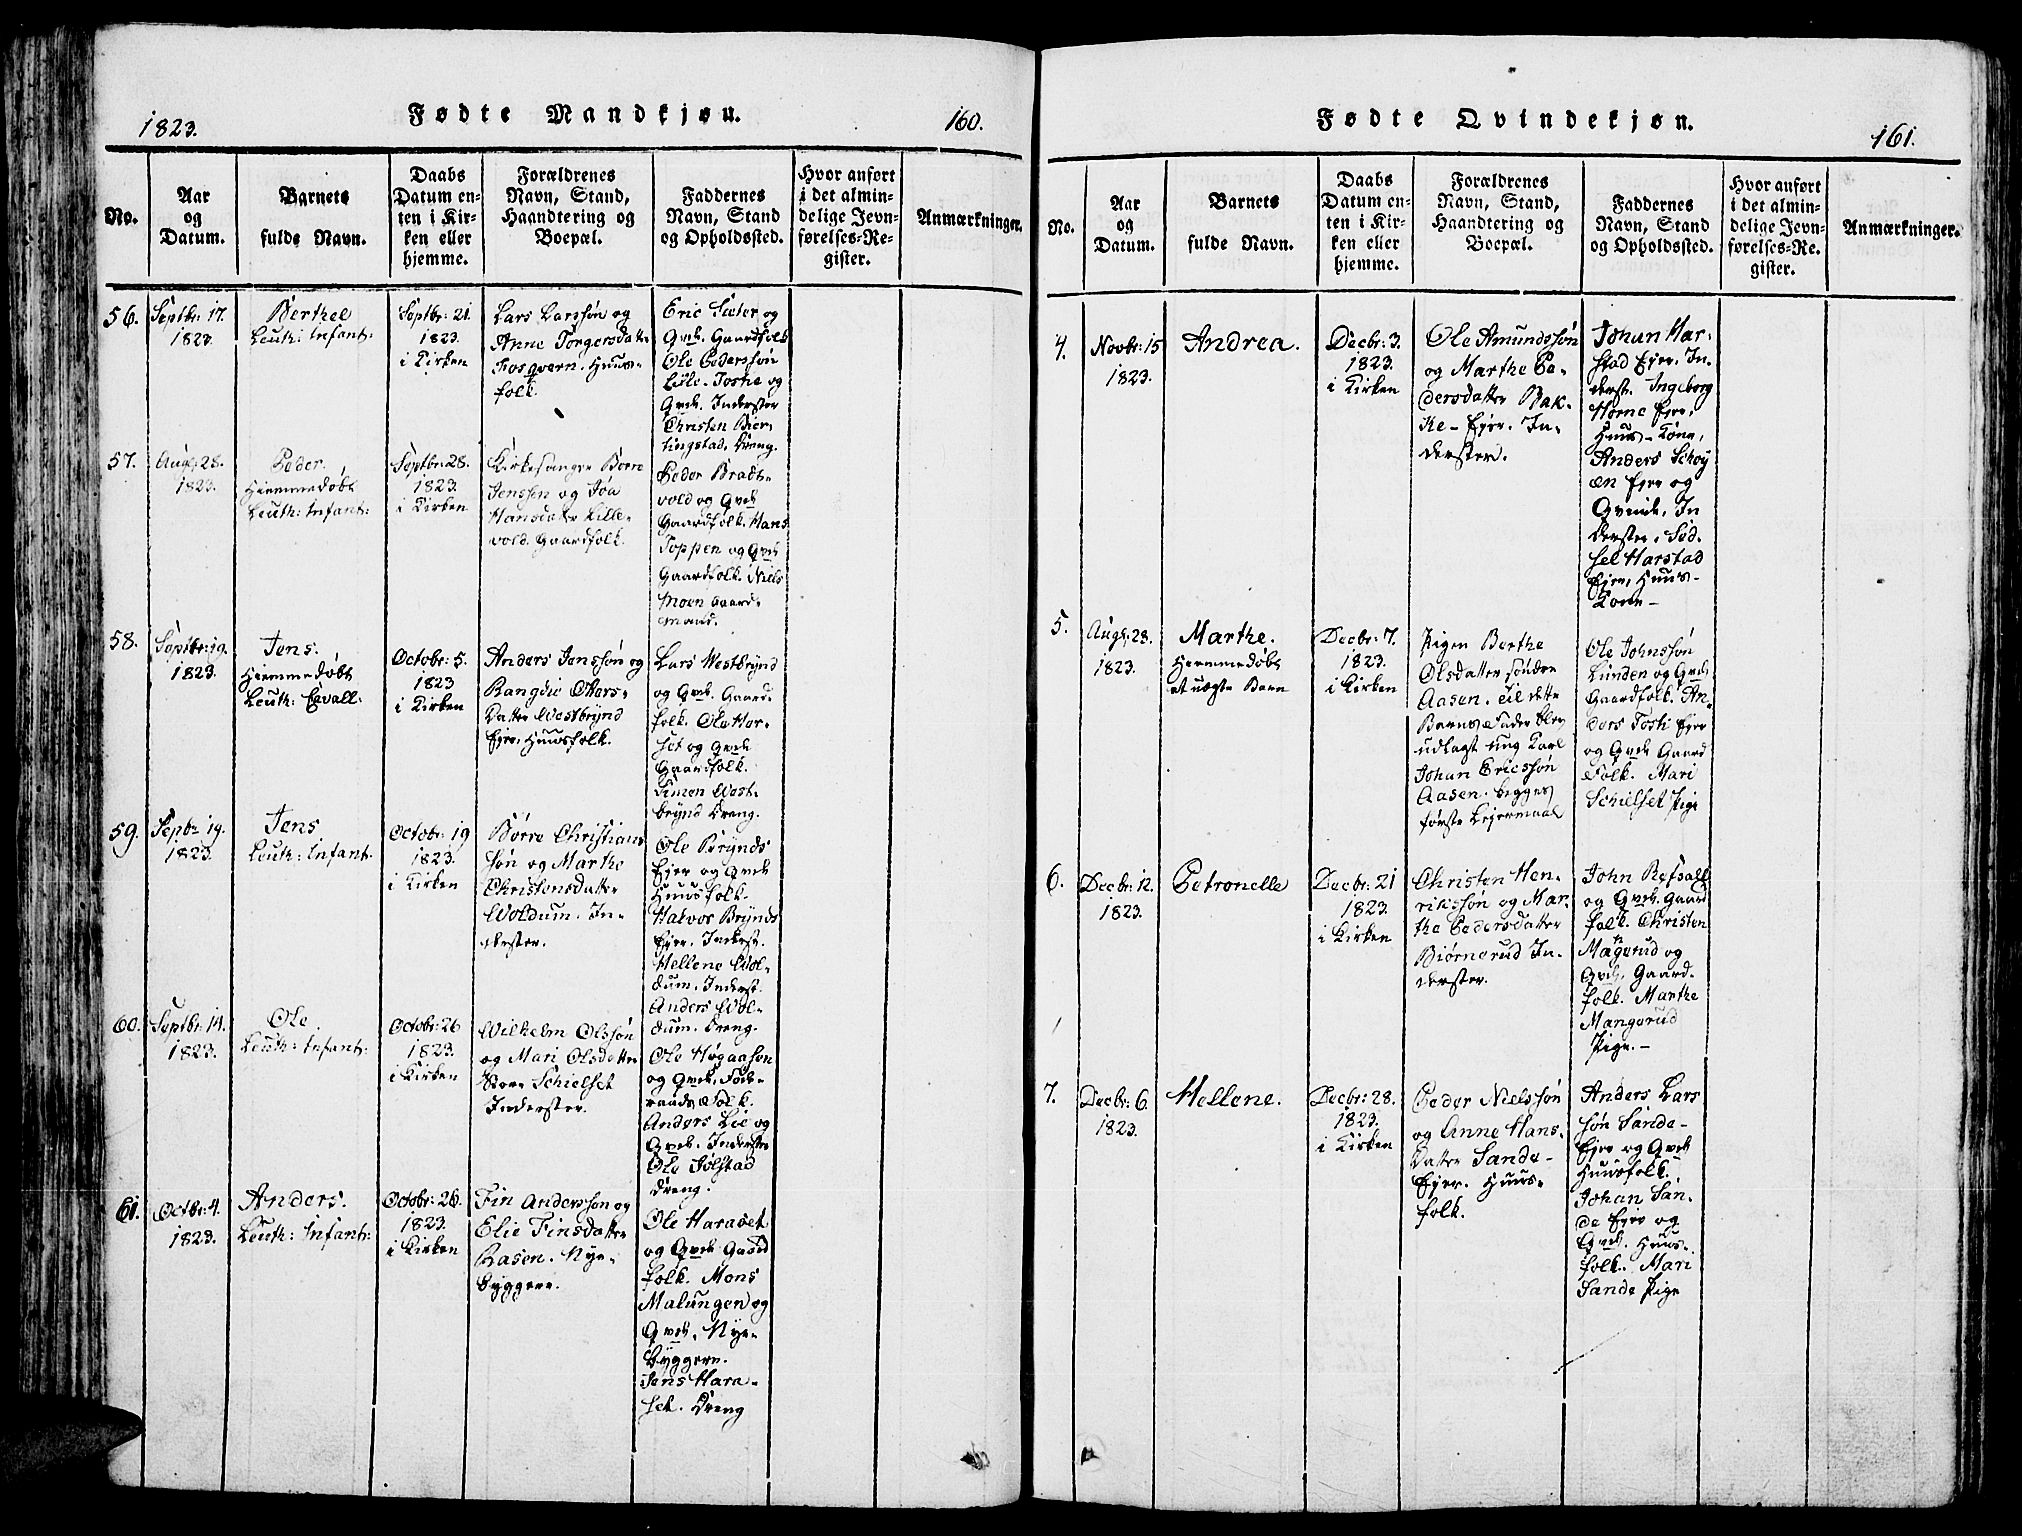 1823.
Fødte Mandkjøn.
160.
No.
Aar
og
Datum.
Barnets
fulde Navn.
Daabs
Datum en-
ten i Kir-
ken eller
hjemme.
Forældrenes
Navn, Stand,
Haandtering og
Boepæl.
Faddernes
Navn, Stand
og Opholdssted.
Hvor anført
i det almin-
delige Jevn-
førelses-Re-
gister.
Anmærkninger.
56.
Septbr: 17.
1823.
Berthel
Leuth: Infant:
Septbr: 21.
1823.
i Kirken
Lars Larssøn og
Anne Torgersdatter
Fosqvern. Huus-
folk.
Eric Sæter og
Qvde. Gaardfolk
Ole Pederssøn
Lille-Toshe og
Qvde. Inderster
Christen Bier-
tingstad. Dreng.
57.
Aug: 28.
1823.
Peder.
Hiemmedøbt
Leuth: Infant:
Septbr: 28.
1823.
i Kirken
Kirkesanger Boere
Jenssen og Joa
Hansdatter Lille-
vold. Gaardfolk.
Peder Bradt-
vold og Qvde
Gaardfolk. Hans
Toppen og Qvde
Gaardfolk. Niels
Moen Gaard-
mand.
58.
Septbr: 19.
1823.
Jens.
Hiemmedøbt
Leuth: Cavall:
Octobr: 5.
1823
i Kirken
Anders Jenssøn og
Rangdie Ottars-
Datter Westbrynd
Ejer. Huusfolk.
Lars Westbrynd
og Qvde. Gaard-
folk. Ole Hor-
set og Qvde
Gaardfolk.
Simen West-
brynd Dreng.
59.
Septbr 19.
1823.
Jens
Leuth: Infant.
Octobr: 19
1823.
i Kirken
Børre Christians
søn og Marthe
Christensdatter
Woldum. In-
derster.
Ole Brynds
Ejer og Qvde
Huusfolk.
Halvor Brynds
Ejer. Inderst.
Hellene Wol-
dum. Inderst.
Anders Wol-
dum. Dreng.
60.
Septbr: 14.
1823.
Ole
Leuth: Infant:
Octobr: 26
1823.
i Kirken
Wilhelm Olssøn
og Mari Olsdatter
Store Schielset
Inderster.
Ole Høgaasen
og Qvde. Føde-
raads Folk.
Anders Lie og
Qvde. Inderster
Ole Jølstad
Dreng.
61.
Octbr: 4.
1823.
Anders.
Leuth: Infant:
Octobr: 26.
1823.
i Kirken
Fin Anderssøn og
Elie Finsdatter
Rasen. Nye-
byggere.
Ole Haraset
og Qvde Gaard
folk. Mons
Malungen og
Qvde. Nye-
byggere.
Jens Hara-
set. Dreng
Fødte Qvindekjøn.
161.
No.
Aar
og
Datum.
Barnets
fulde Navn.
Daabs
Datum en-
ten i Kir-
ken eller
hjemme.
Forældrenes
Navn, Stand,
Haandtering og
Boepæl.
Faddernes
Navn, Stand
og Opholdssted.
Hvor anført
i det almin-
delige Jevn-
førelses-Re-
gister.
Anmærkninger.
4.
Novbr: 15
1823.
Andrea.
Decbr: 3.
1823.
i Kirken
Ole Amundssøn
og Marthe Pe-
dersdatter Bak-
ke-Ejer. In-
derster.
Johan Har-
stad Ejer. In-
derst. Ingeborg
Horne Ejer,
Huus-Kone,
Anders Schøy
en Ejer og
Qvinde, In
derster. Sød-
sel Harstad
Ejer, Huus-
Kone-
5.
Aug: 28.
1823.
Marthe.
Hiemmedøbt
et uægte Barn
Decbr: 7.
1823.
i Kirken
Pigen Berthe
Olsdatter søndre
Aasen. til dette
Barns Fader blev
udlagt ung Karl
Johan Ericssøn
Aasen. begges
første Lejermaal
Ole Johnssøn
Lunden og Qvde
Gaardfolk. An-
ders Toshi Ejer
og Qvde Gaard
Folk. Mari
Schielset Pige
6.
Decbr: 12.
1823.
Petronelle
Decbr: 21
1823.
i Kirken
Christen Hen-
rikssøn og Mar-
the Pedersdatter
Biørnerud In-
derster.
John Refsall
og Qvde. Gaard
folk. Christen
Mangerud og
Qvde. Gaard-
folk. Marthe
Mangerud
Pige.-
7.
Decbr: 6.
1823.
Hellene.
Decbr: 28.
1823.
i Kirken
Peder Nielssøn
og Anne Hans-
Datter Sande-
Ejer. Huus-
folk.
Anders Lars
søn Sande-
Ejer og Qvde
Huusfolk.
Johan San-
de Ejer og
Qvde. Huus-
folk. Mari
Sande Pige